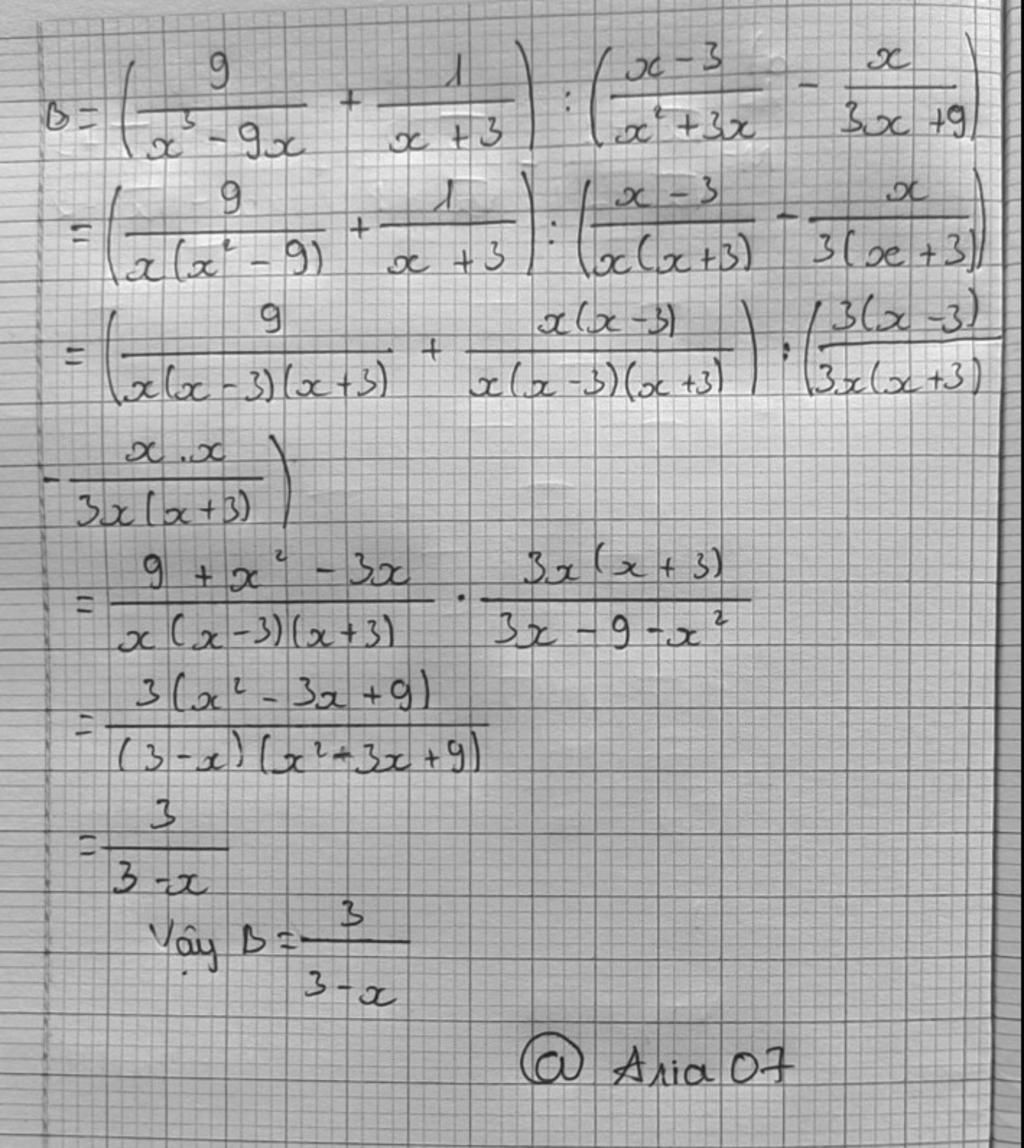 B = (9/(x³ - 9x) + 1/(x + 3)) : ((x - 3)/(x² + 3x) - x/(3x + 9))
= (9/(x(x² - 9)) + 1/(x + 3)) : ((x - 3)/(x(x + 3)) - x/(3(x + 3)))
= (9/(x(x - 3)(x + 3)) + x(x - 3)/(x(x - 3)(x + 3))) : (3(x - 3)/(3x(x + 3))
- x.x/(3x(x + 3)))
= (9 + x² - 3x)/(x(x - 3)(x + 3)) . 3x(x + 3)/(3x - 9 - x²)
= 3(x² - 3x + 9)/((3 - x)(x² - 3x + 9))
= 3/(3 - x)
Vậy B = 3/(3 - x)
@ Aria 07